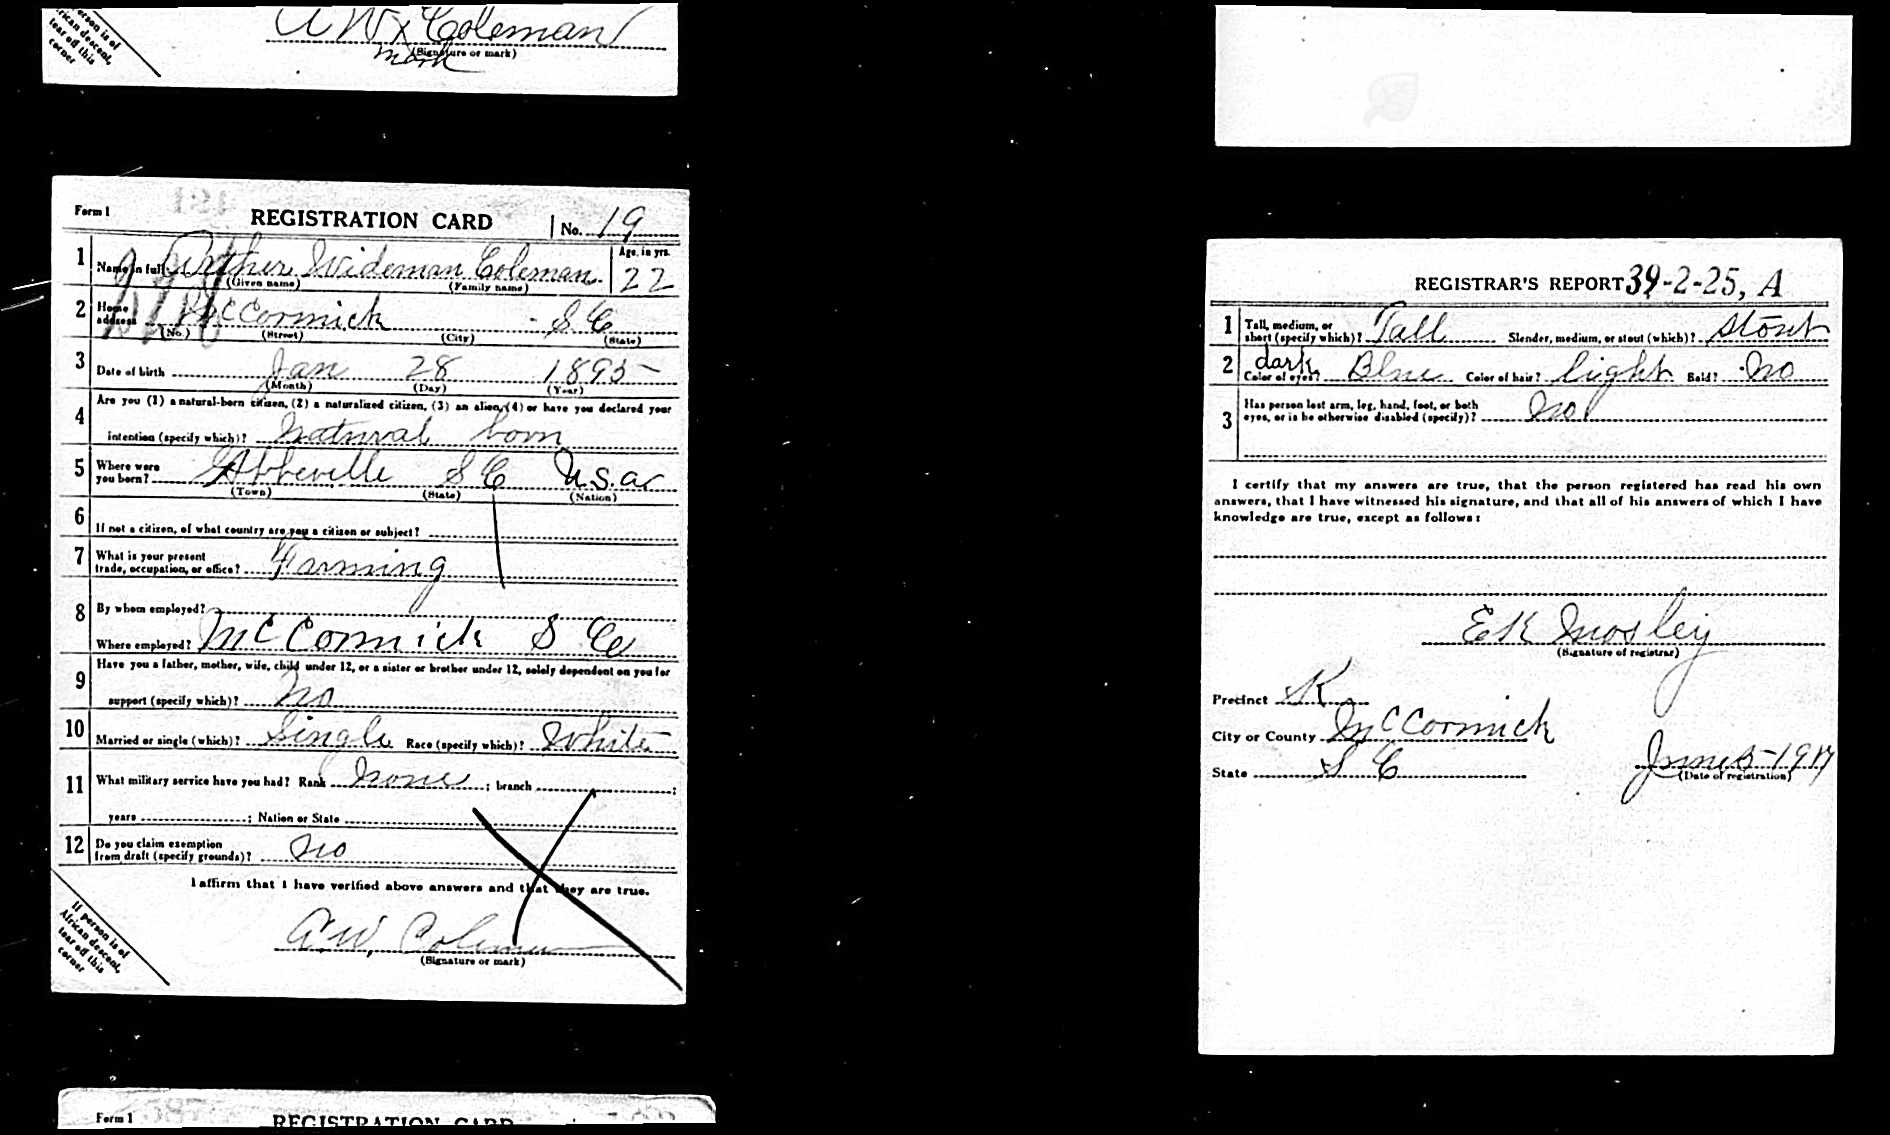 person is of
African descent,
tear off this
corner
A W x Coleman
mark
(Signature or mark)
Form 1
REGISTRATION CARD
No. 19
1 Name in full Arther Wideman Coleman
Age, in yrs. 22
(Given name) (Family name)
2 Home address McCormick S C
(No.) (Street) (City) (State)
3 Date of birth Jan 28 1895
(Month) (Day) (Year)
4 Are you (1) a natural-born citizen, (2) a naturalized citizen, (3) an alien, (4) or have you declared your
intention (specify which)? Natural born
5 Where were you born? Abbeville S C U.S.a
(Town) (State) (Nation)
6 If not a citizen, of what country are you a citizen or subject?
7 What is your present
trade, occupation, or office? Farming
8 By whom employed?
Where employed? McCormick S C
9 Have you a father, mother, wife, child under 12, or a sister or brother under 12, solely dependent on you for
support (specify which)? No
10 Married or single (which)? Single Race (specify which)? White
11 What military service have you had? Rank None ; branch ;
years ; Nation or State
12 Do you claim exemption
from draft (specify grounds)? No
I affirm that I have verified above answers and that they are true.
A. W. Coleman
(Signature or mark)
If person is of
African descent,
tear off this
corner
Form 1
REGISTRATION CARD
REGISTRAR'S REPORT 39-2-25, A
1 Tall, medium, or
short (specify which)? Tall Slender, medium, or stout (which)? Stout
2 dark
Color of eyes? Blue Color of hair? light Bald? No
3 Has person lost arm, leg, hand, foot, or both
eyes, or is he otherwise disabled (specify)? No
I certify that my answers are true, that the person registered has read his own
answers, that I have witnessed his signature, and that all of his answers of which I have
knowledge are true, except as follows:
E K Mosley
(Signature of registrar)
Precinct K
City or County McCormick
State S C
June 5-1917
(Date of registration)